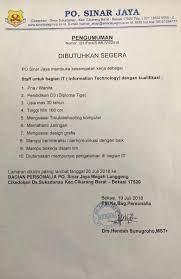 PO. SINAR JAYA
PENGUMUMAN
DIBUTUHKAN SEGERA
PO. Sinar Jaya membuka kesempatan kerja sebagai
Staff untuk bagian IT ( Information Technology) dengan kualifikasi :
1. Pria / Wanita
2. Pendidikan D3 (Diploma Tiga)
3. Usia max 30 tahun
4. Tinggi Min 160 cm
5. Menguasai Troubleshooting komputer
6. Memahami Jaringan
7. Menguasai design grafis
8. Mampu berinteraksi / berkomunikasi dengan baik
9. Mampu bekerja dalam tim
10. Diutamakan mempunyai pengalaman di bagian IT
Lamaran dikirim paling lambat tanggal 25 Juli 2018 ke
BAGIAN PERSONALIA PO. Sinar Jaya Megah Langgeng
Cikedokan Ds.Sukadanau Kec.Cikarang Barat - Bekasi 17520
Bekasi, 19 Juli 2018
Personalia